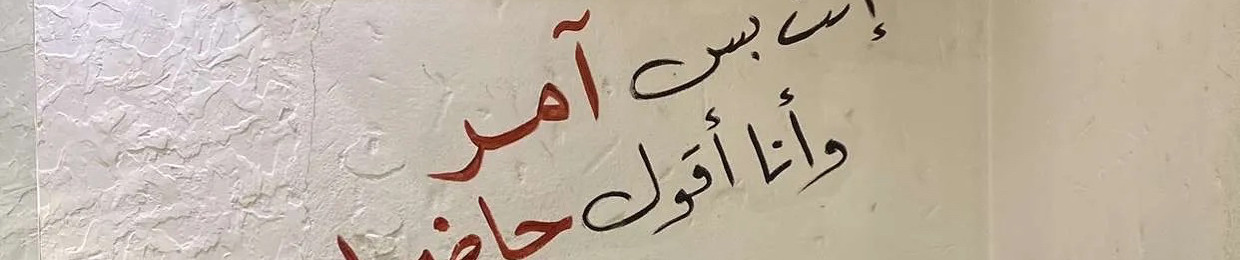 إنت بس آمر
وأنا أقول حاضر